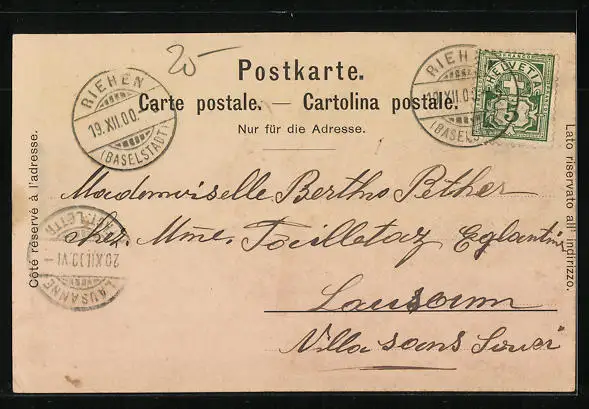 20-
Postkarte.
Carte postale. — Cartolina postale.
Nur für die Adresse.
Côté réservé à l'adresse.
Lato riservato all' indirizzo.
RIEHEN
19.XII.00.
(BASELSTADT)
RIEHEN
19.XII.0
(BASELSTADT)
FRANCO
HELVETIA
5
Mademoiselle Bertha Pether
chez. Mme. Tailletaz Eglantine
Lausann
Villa sans Souci
LAUSANNE
20.XII.00.VI-
LETTR.